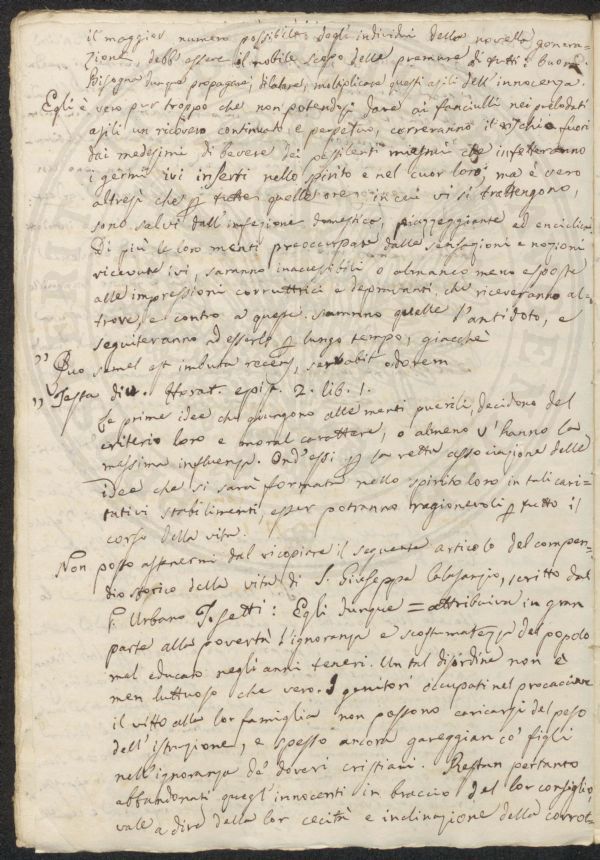 il maggior numero possibile degli individui della novella genera-
zione, debb'essere il nobile scopo delle premure di tutti i buoni.
Bisogna dunque propagare, dilatare, moltiplicare questi asili dell'innocenza.
Egli è vero pur troppo che non potendosi dare ai fanciulli nei prelodati
asili un ricovero continuato e perpetuo, correranno il rischio fuori
dai medesimi di bevere dei pestilenti miasmi che infetteranno
i germi ivi inserti nello spirito e nel cuor loro; ma è vero
altresì che p tutte quelle ore in cui vi si trattengono,
sono salvi dall'infezione domestica, piazzeggiante ed
Di più le loro menti preoccupate dalle sensazioni e nozioni
ricevute ivi, saranno inaccessibili o almanco meno esposte
alle impressioni corruttrici e depravanti, che riceveranno al-
trove, e contro a queste saranno quelle l'antidoto, e
seguiteranno ad esserlo p lungo tempo, giacchè
" Quo semel est imbuta recens, servabit odorem
" Testa diu. Horat. epist. 2. lib. 1.
Le prime idee che giungono alle menti puerili, decidono del
criterio loro e moral carattere, o almeno v'hanno la
massima influenza. Ond'essi p la retta associazione delle
idee che si sarà formata nello spirito loro in tali cari-
tativi stabilimenti, esser potranno ragionevoli p tutto il
corso della vita.
Non posso astenermi dal ricopiare il seguente articolo del compen-
dio storico della vita di S. Giuseppe Calasanzio, scritto dal
P. Urbano Tosetti: Egli dunque = attribuiva in gran
parte alla povertà l'ignoranza e scostumatezza del popolo
mal educato negli anni teneri. Un tal disordine non è
men luttuoso che vero. I genitori occupati nel procacciare
il vitto alla lor famiglia non possono caricarsi del peso
dell'istruzione, e spesso ancora gareggian co' figli
nell'ignoranza de' doveri cristiani. Restan pertanto
abbandonati quegl'innocenti in braccio del lor consiglio,
vale a dire della lor cecità e inclinazione della corrot-